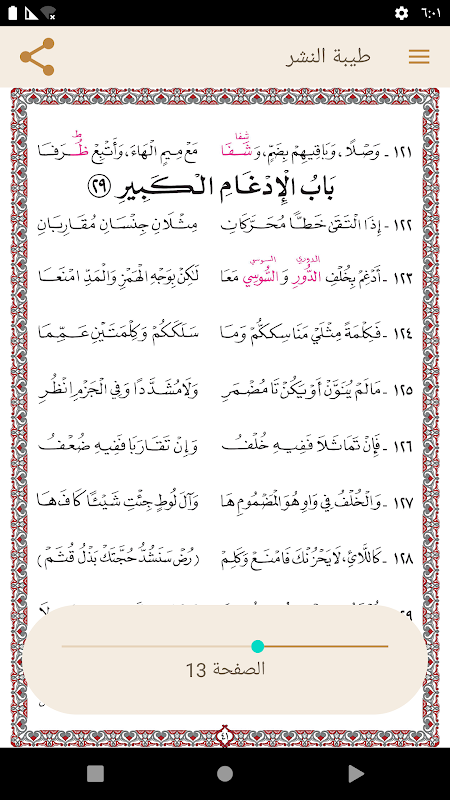 ٦:٠١
طيبة النشر
شَفَا ط
١٢١ ـ وَصْلًا، وَبَاقِيهِمْ بِضَمٍّ، وَشَفَا مَعْ مِيمٍ الْهَاءَ، وَأَتْبِعْ ظُرَفَا
بَابُ الْإِدْغَامِ الْكَبِيرِ (٢٩)
١٢٢ ـ إِذَا الْتَقَى خَطًّا مُحَرَّكَانِ مِثْلَانِ جِنْسَانِ مُقَارِبَانِ
الدوري السوسي
١٢٣ ـ أَدْغِمْ بِخُلْفِ الدُّورِ وَالسُّوسِي مَعَا لَكِنْ بِوَجْهِ الْهَمْزِ وَالْمَدِّ امْنَعَا
١٢٤ ـ فَكِلْمَةً مِثْلَيْ مَنَاسِكَكُمْ وَمَا سَلَكَكُمْ وَكِلْمَتَيْنِ عَمِّمَا
١٢٥ ـ مَا لَمْ يُنَوَّنْ أَوْ يَكُنْ تَا مُضْمَرِ وَلَا مُشَدَّدًا وَفِي الْجَزْمِ انْظُرِ
١٢٦ ـ فَإِنْ تَمَاثَلَا فَفِيهِ خُلْفُ وَإِنْ تَقَارَبَا فَفِيهِ ضُعْفُ
١٢٧ ـ وَالْخُلْفُ فِي وَاوِ هُوَ الْمَضْمُومِ هَا وَآلَ لُوطٍ جِئْتِ شَيْئًا كَافَ هَا
١٢٨ ـ كَاللَّائِ، لَا يَحْزُنْكَ فَامْنَعْ وَكَلِمْ (رُضْ سَنَشُدُّ حُجَّتَكْ بَذْلُ قُثَمْ)
الصفحة 13
٤١